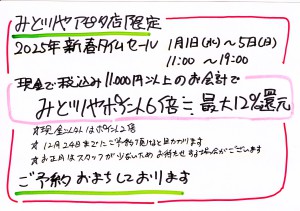 みどりや 店限定
2025年新春タイムセール 1月1日(水)〜5日(日)
11:00〜19:00
現金で税込み11,000円以上のお会計で
みどりやポイント6倍 最大12%還元
*現金以外はポイント2倍
*12月24日までにご予約 なります
*お正月はスタッフが少ないため お待たせする場合がございます
ご予約おまちしております